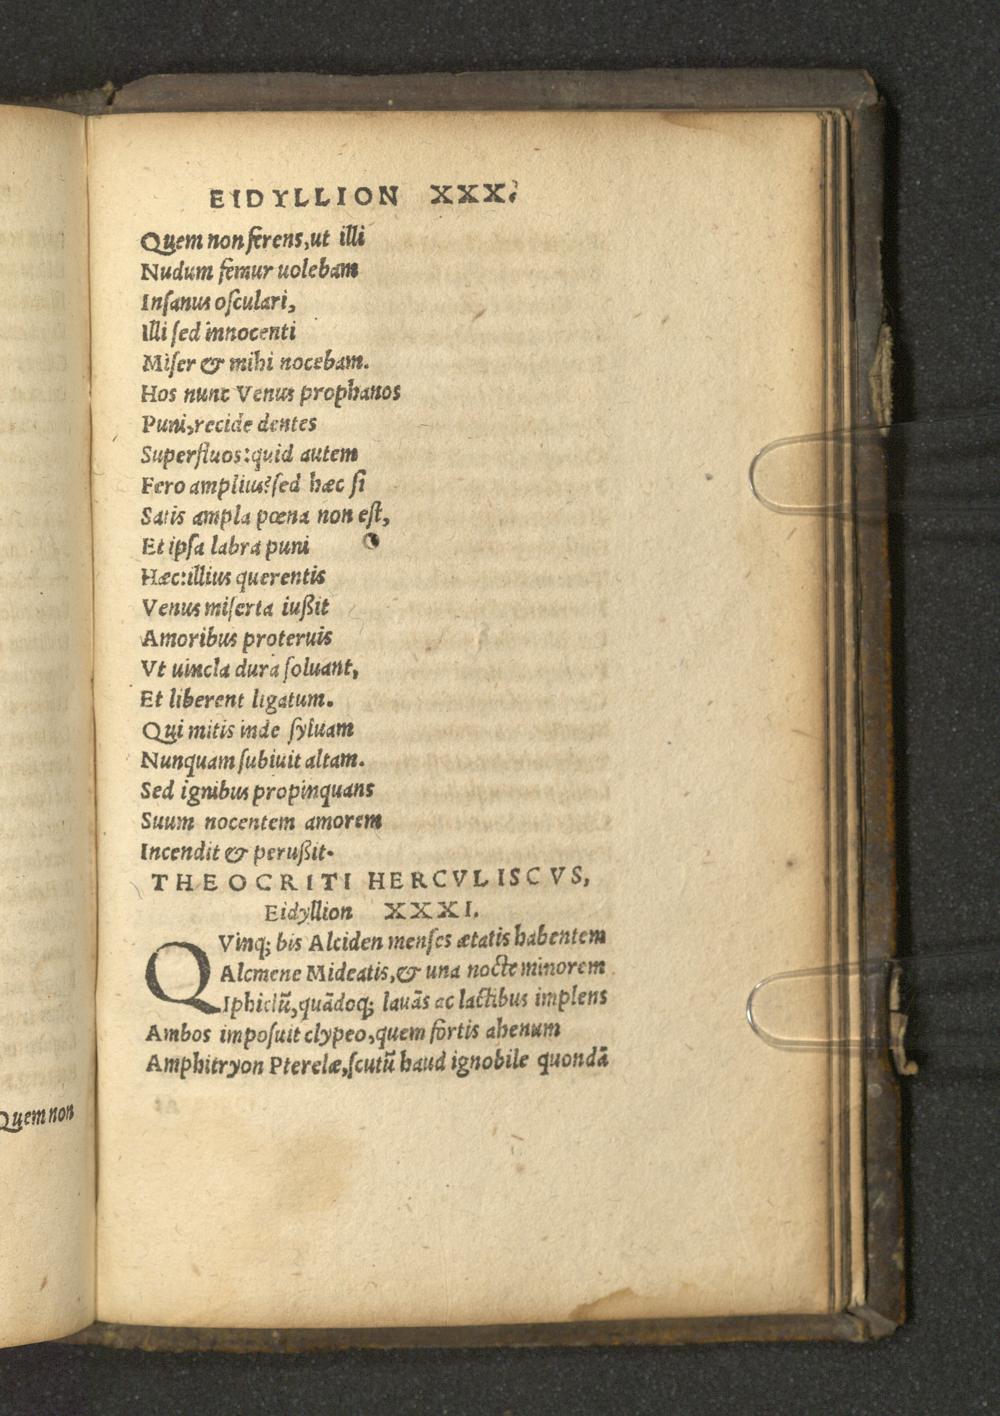 EIDYLLION XXX.
Quem non ferens, ut illi
Nudum femur uolebam
Inſanus oſculari,
Illi ſed innocenti
Miſer & mihi nocebam.
Hos nunc Venus prophanos
Puni, recide dentes
Superfluos: quid autem
Fero amplius? ſed hæc ſi
Satis ampla pœna non eſt,
Et ipſa labra puni
Hæc: illius querentis
Venus miſerta iußit
Amoribus proteruis
Vt uincla dura ſoluant,
Et liberent ligatum.
Qui mitis inde ſyluam
Nunquam ſubiuit altam.
Sed ignibus propinquans
Suum nocentem amorem
Incendit & perußit.
THEOCRITI HERCVLISCVS,
Eidyllion XXXI.
QVinq; bis Alciden menſes ætatis habentem
Alcmene Mideatis, & una nocte minorem
Iphiclũ, quãdoq; lauãs ac lactibus implens
Ambos impoſuit clypeo, quem fortis ahenum
Amphitryon Pterelæ, ſcutũ haud ignobile quondã
Quem non